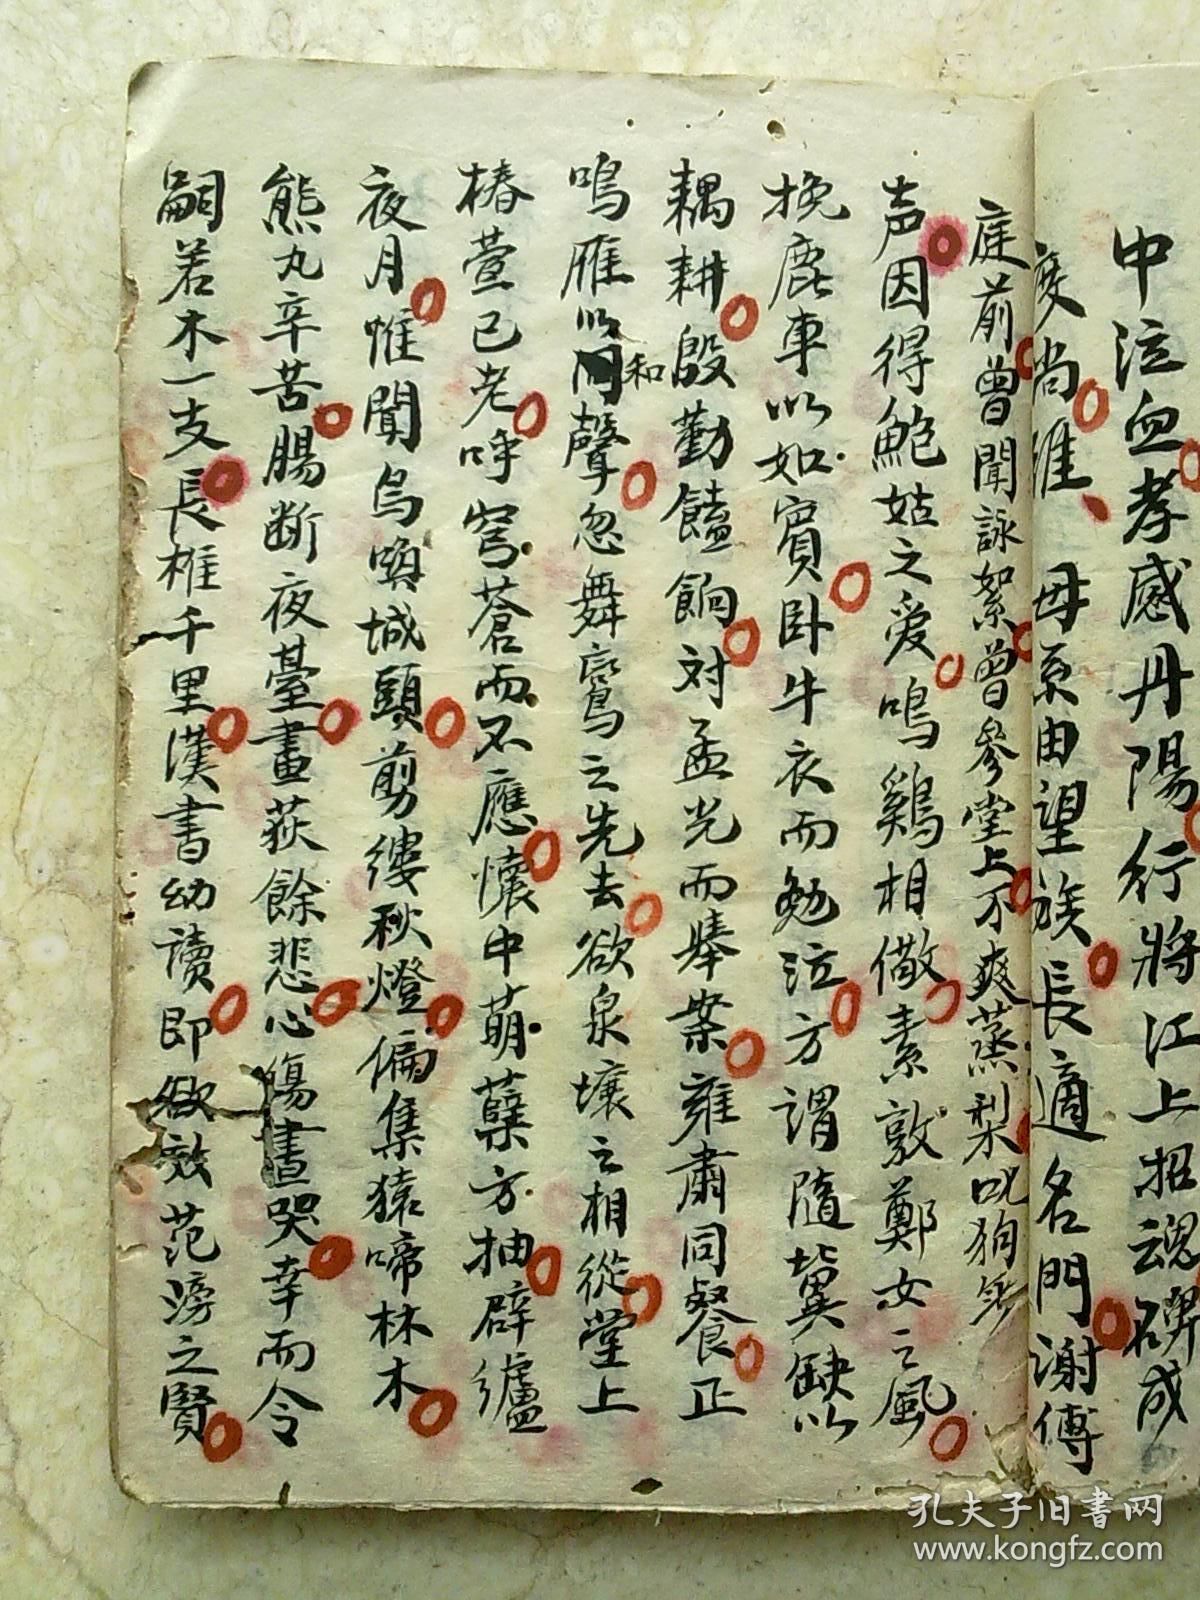 中泣血孝感丹陽行將江上招魂碑成
度尚維、母系由望族長適名門謝傅
庭前曾聞詠絮曾參堂上不爽蒸梨叱狗無
声因得鮑姑之爱鳴鷄相儆素敦鄭女之風
挽鹿車以如賓卧牛衣而勉泣方謂隨冀缺以
耦耕殷勤饁餉对孟光而捧案雍肅同餐正
鳴雁以同和聲忽舞鸞之先去欲泉壤之相從堂上
椿萱已老呼穹蒼而不應懷中萌蘖方抽辟纑
夜月惟聞烏喚城頭剪縷秋燈偏集猿啼林木
熊丸辛苦腸断夜臺畫荻餘悲心傷晝哭幸而令
嗣若木一支長椎千里漢書幼讀即欲效范滂之賢
孔夫子旧書网
www.kongfz.com